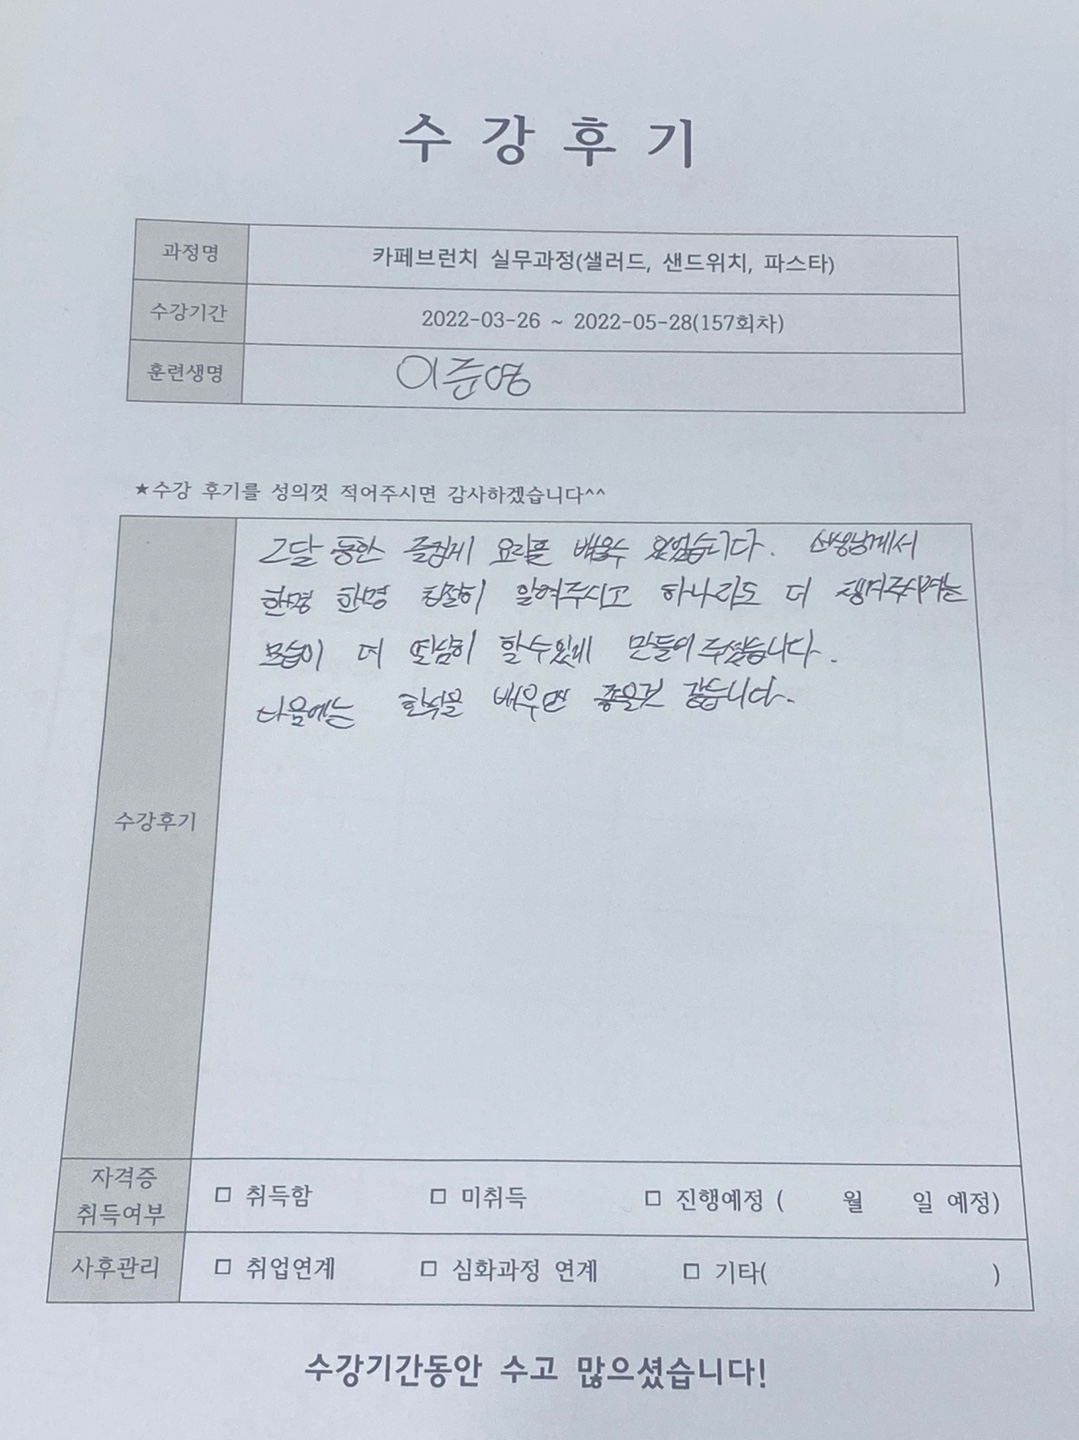 수 강 후 기
과정명 카페브런치 실무과정(샐러드, 샌드위치, 파스타)
수강기간 2022-03-26 ~ 2022-05-28(157회차)
훈련생명 이준영
★수강 후기를 성의껏 적어주시면 감사하겠습니다^^
2달 동안 즐겁게 요리를 배울수 있었습니다. 선생님께서
한명 한명 친절히 알려주시고 하나라도 더 챙겨주시려는
모습이 더 열심히 할수있게 만들어 주셨습니다.
다음에는 한식을 배우면 좋을것 같습니다.
수강후기
자격증
취득여부 □ 취득함 □ 미취득 □ 진행예정 ( 월 일 예정)
사후관리 □ 취업연계 □ 심화과정 연계 □ 기타( )
수강기간동안 수고 많으셨습니다!